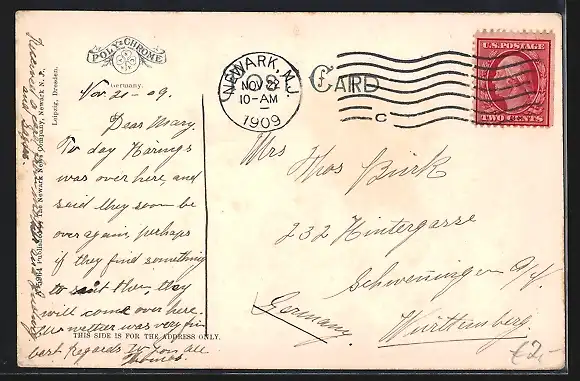 POLY-CHROME
Germany.
Nov. 21-09.
Dear Mary.
To day Härings
was over here, and
said they soon be
over again, perhaps
if they find something
to suit them, they
will come over here.
wetter was very fine
best regards to you all
THIS SIDE IS FOR THE ADDRESS ONLY.
The Newark News Company, Newark N. J.,
Leipzig, Dresden.
NEWARK, N.J.
NOV 22
10-AM
1909
C
CARD
U.S.POSTAGE
TWO CENTS
Mrs
Thos Bürk
232 Hintergasse
Schwenningen a/N.
Württemberg.
Germany.
€2,-